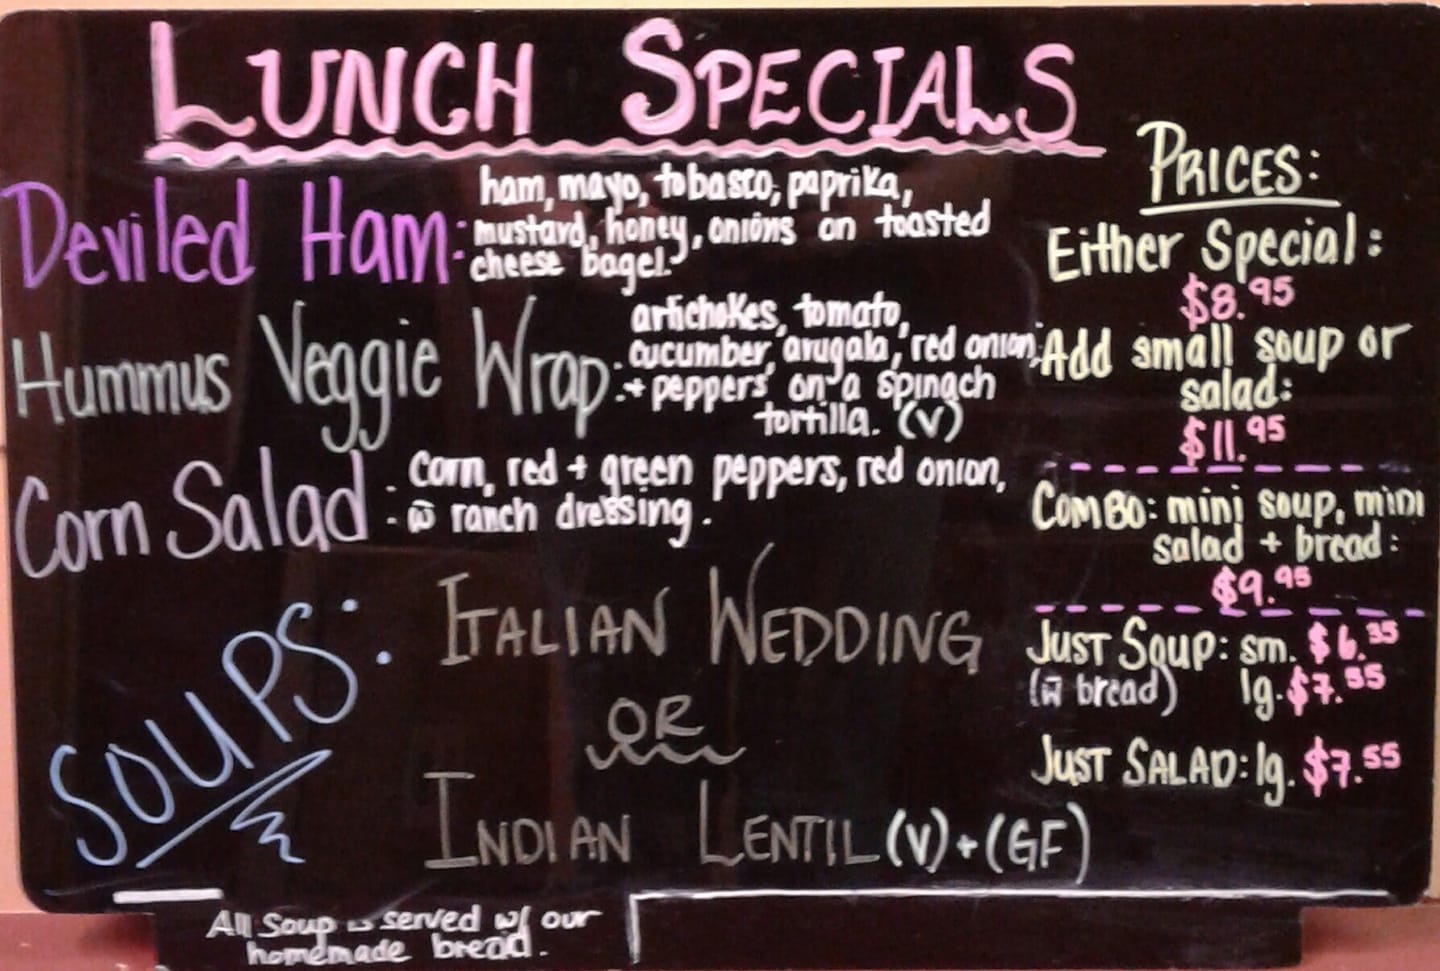 LUNCH SPECIALS
Deviled Ham: ham, mayo, tobasco, paprika,
mustard, honey, onions on toasted
cheese bagel.
Hummus Veggie Wrap: artichokes, tomato,
cucumber, arugala, red onion,
+ peppers on a spinach
tortilla. (V)
Corn Salad: corn, red + green peppers, red onion,
w̄ ranch dressing.
SOUPS:
ITALIAN WEDDING
OR
INDIAN LENTIL (V) + (GF)
All Soup is served w/ our
homemade bread.
PRICES:
Either Special:
$8.95
Add small soup or
salad:
$11.95
COMBO: mini soup, mini
salad + bread:
$9.95
JUST SOUP: sm. $6.35
(w̄ bread) lg. $7.55
JUST SALAD: lg. $7.55